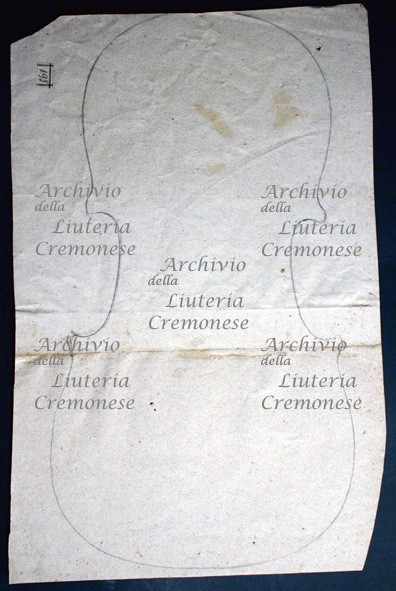 193
Archivio
della
Liuteria
Cremonese
Archivio
della
Liuteria
Cremonese
Archivio
della
Liuteria
Cremonese
Archivio
della
Liuteria
Cremonese
Archivio
della
Liuteria
Cremonese